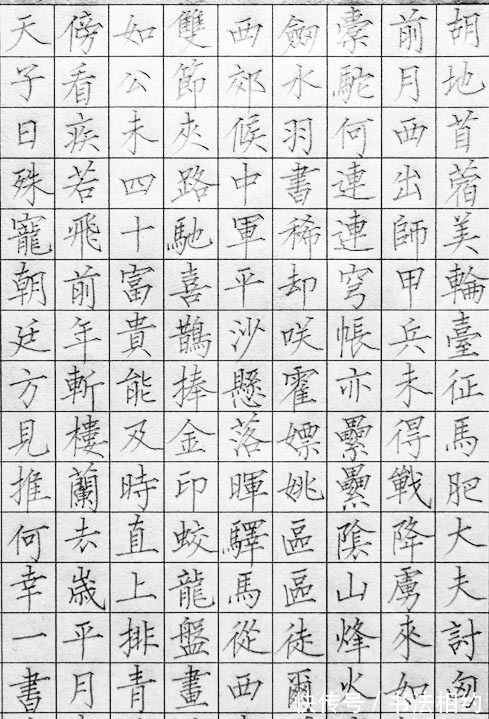 胡地首蓿美輪臺征馬肥大夫討匈
前月西出師甲兵未得戰降虜來如
橐駝何連連穹帳亦纍纍陰山烽火
劍水羽書稀却咲霍嫖姚區區徒爾
西郊候中軍平沙懸落暉驛馬從西
雙節夾路馳喜鵲捧金印蛟龍盤畫
如公未四十富貴能及時直上排青
傍看疾若飛前年斬樓蘭去歲平月
天子日殊寵朝廷方見推何幸一書
快传号 / 书法相约